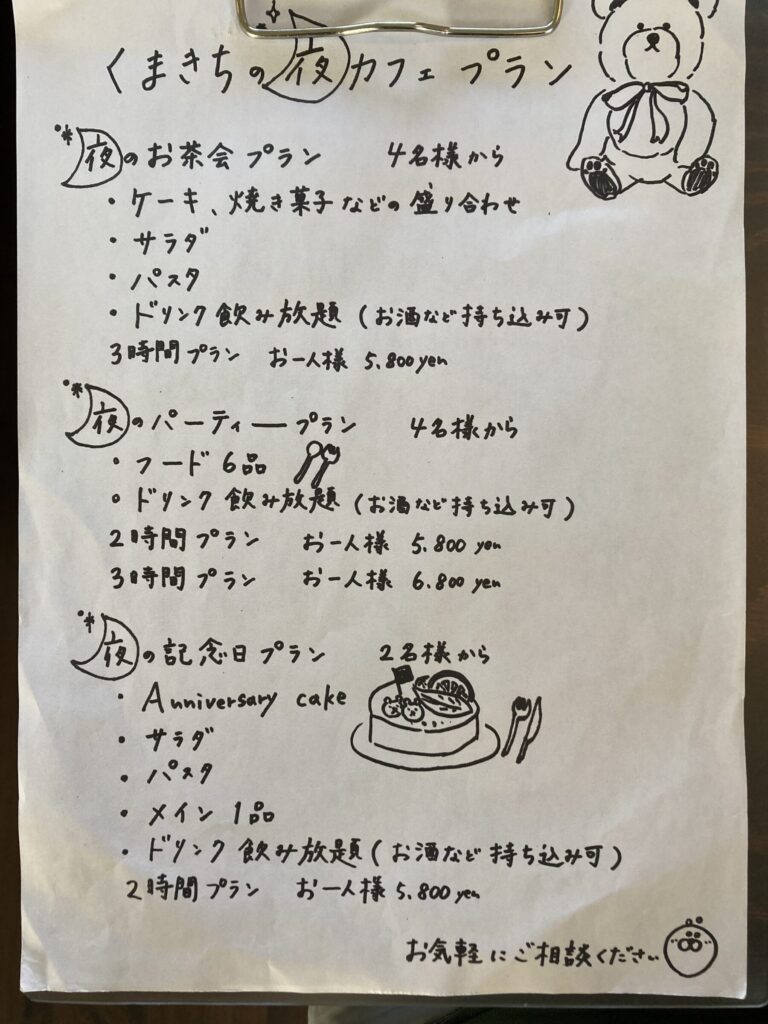 くまきちの夜カフェプラン
夜のお茶会プラン 4名様から
・ケーキ、焼き菓子などの盛り合わせ
・サラダ
・パスタ
・ドリンク飲み放題(お酒など持ち込み可)
3時間プラン お一人様 5.800yen
夜のパーティープラン 4名様から
・フード6品
・ドリンク飲み放題(お酒など持ち込み可)
2時間プラン お一人様 5.800yen
3時間プラン お一人様 6.800yen
夜の記念日プラン 2名様から
・Anniversary cake
・サラダ
・パスタ
・メイン1品
・ドリンク飲み放題(お酒など持ち込み可)
2時間プラン お一人様 5.800yen
お気軽にご相談ください